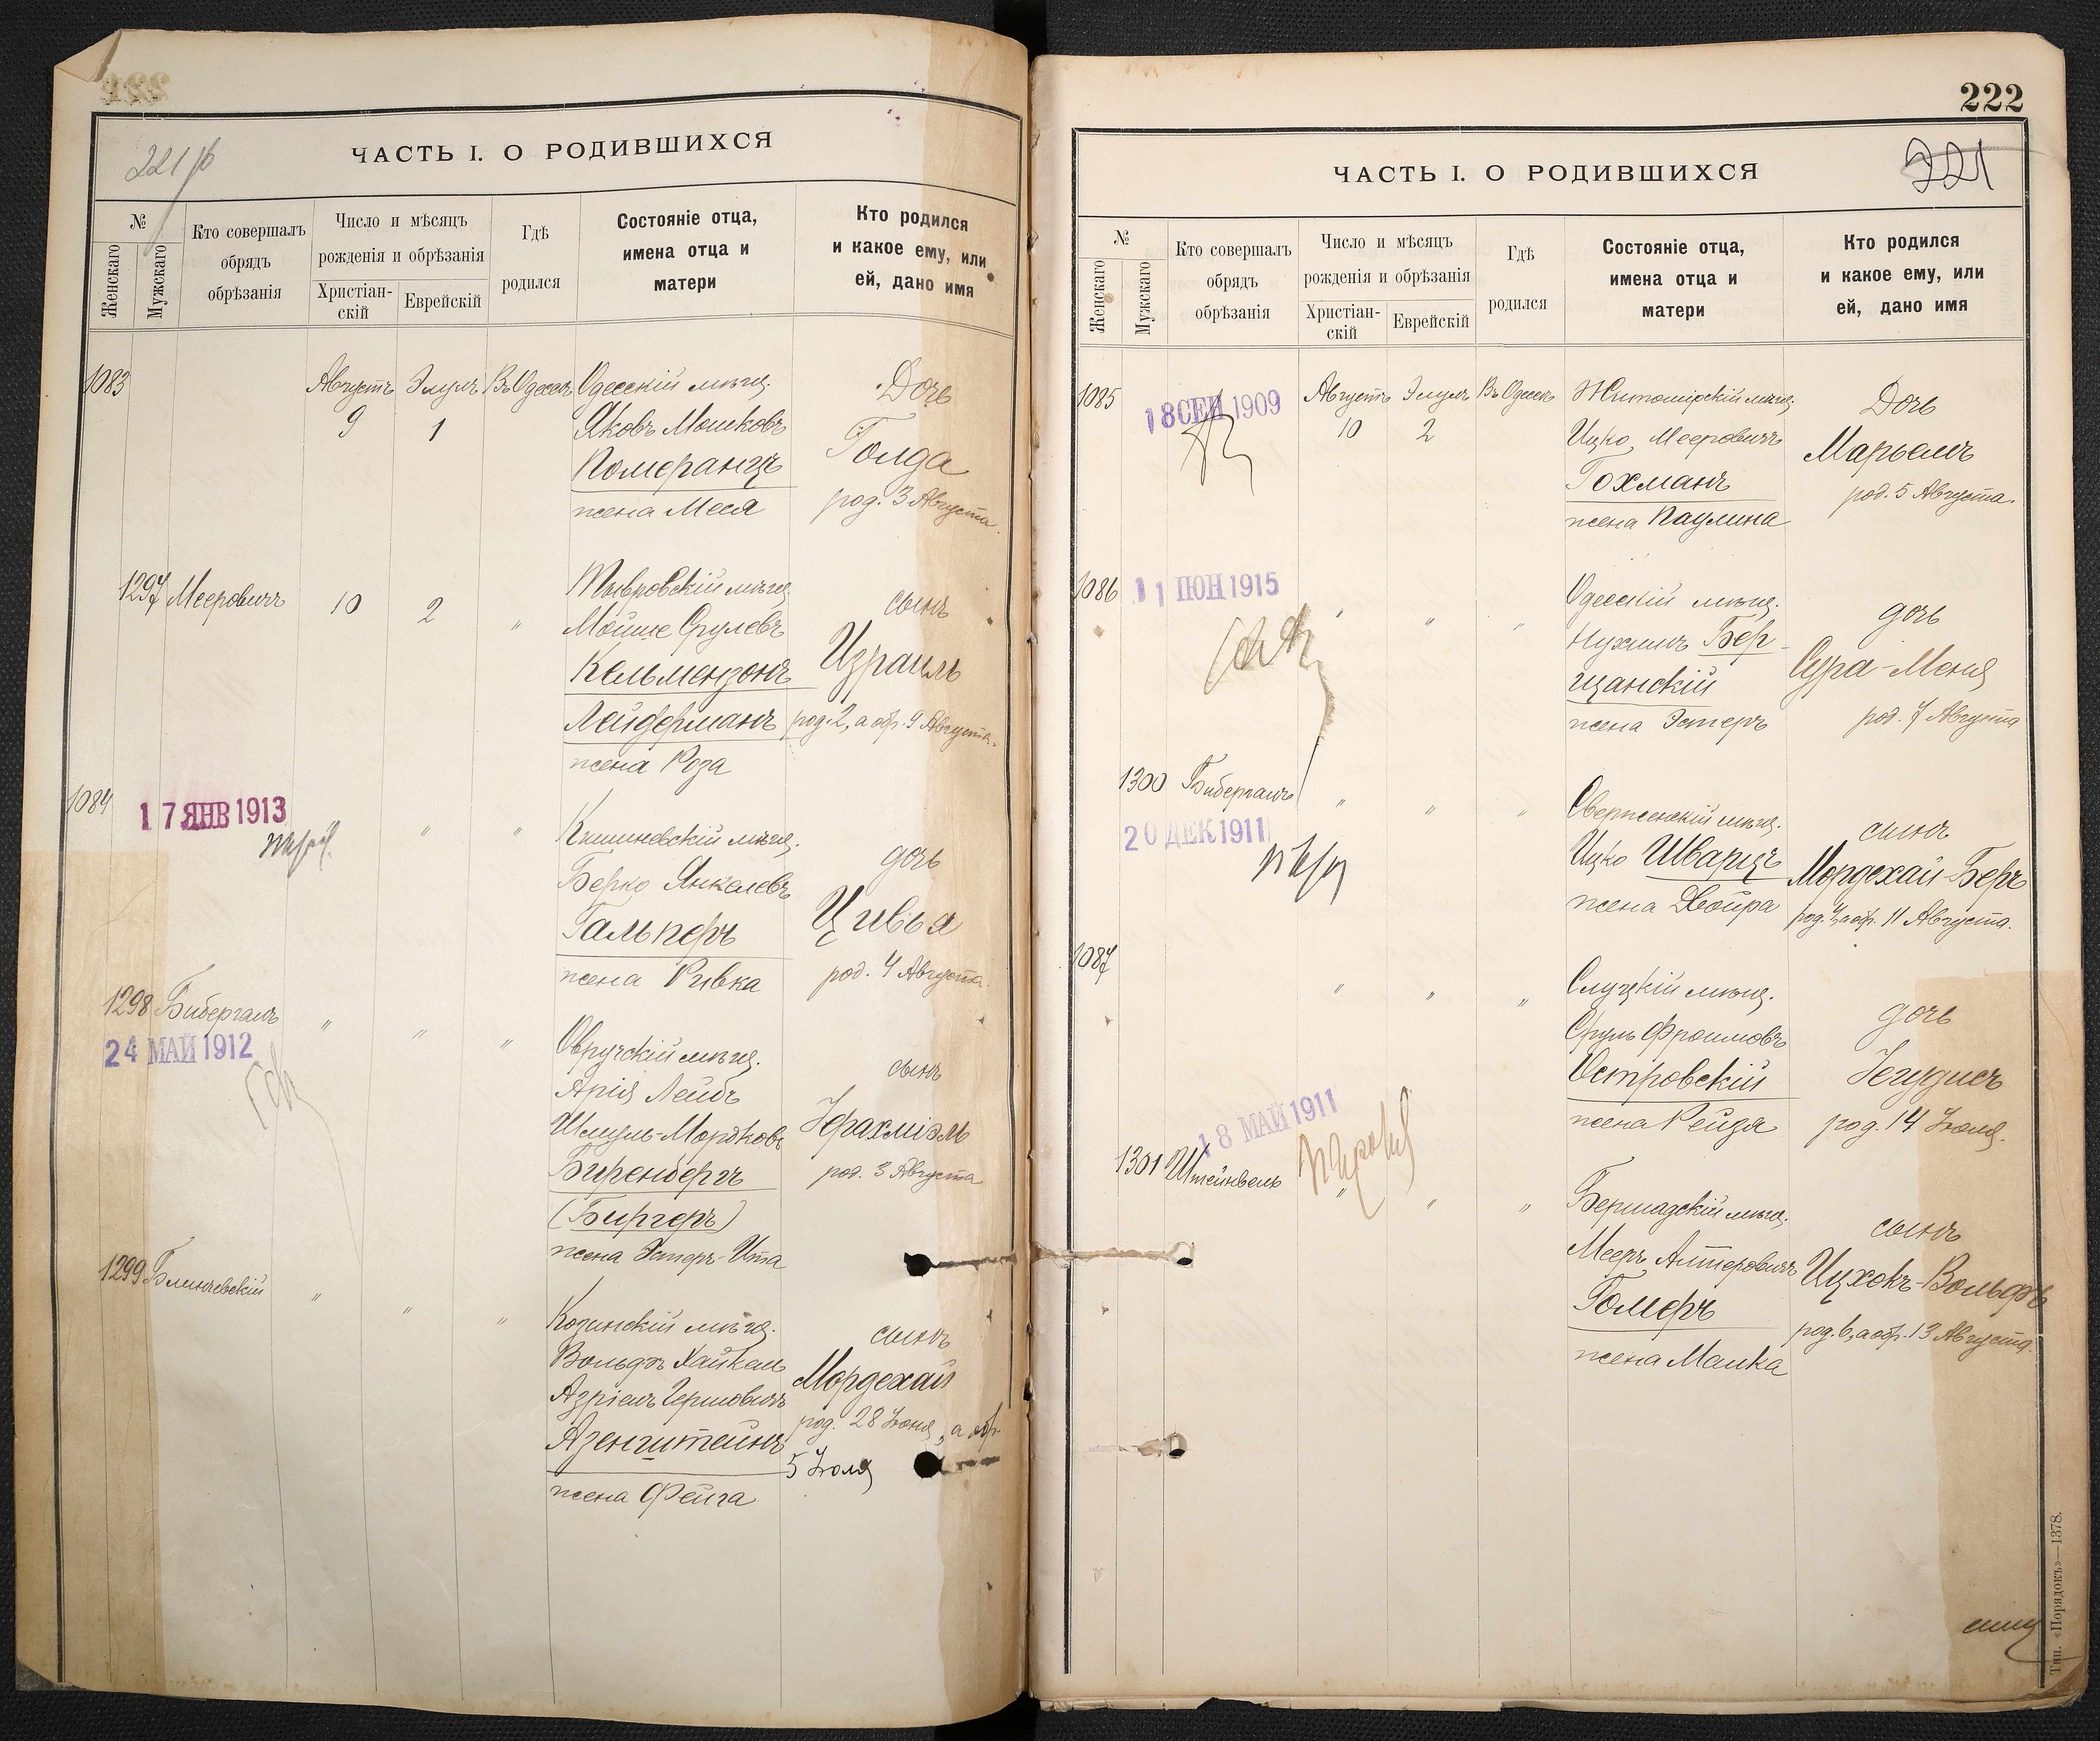 221 об
ЧАСТЬ I. О РОДИВШИХСЯ
№
Женскаго
Мужскаго
Кто совершалъ
обрядъ
обрѣзанія
Число и мѣсяцъ
рожденія и обрѣзанія
Христіан-
скій
Еврейскій
Гдѣ
родился
Состояніе отца,
имена отца и
матери
Кто родился
и какое ему, или
ей, дано имя
1083
Августъ Элулъ Въ Одессѣ Одесскій мѣщ. Дочь
9 1 Яковъ Мошковъ
Померанцъ Голда
жена Меся род. 3 Августа.
1297 Мееровичъ 10 2 " Тывровскій мѣщ. сынъ
Мойше Срулевъ
Кельмензонъ Израиль
Лейдерманъ род. 2, а обр. 9 Августа.
жена Роза
1084
17 ЯНВ 1913
" " Кишиневскій мѣщ. дочь
Берко Янкелевъ
Гальперъ Цивья
жена Ривка род. 4 Августа.
1298 Бибергалъ " " " Овручскій мѣщ. сынъ
24 МАЙ 1912
Арія Лейбъ
Шмуль-Мордковъ Іерахміэль
Биренбергъ род. 3 Августа
(Биргеръ)
жена Эстеръ-Ита
1299 Блинчевскій " " " Козинскій мѣщ. сынъ
Вольфъ Хайкель
Азріель Гершовичъ Мордехай
Азенштейнъ род. 28 Іюня, а обр.
5 Іюля
жена Фейга
222
221
ЧАСТЬ I. О РОДИВШИХСЯ
№
Женскаго
Мужскаго
Кто совершалъ
обрядъ
обрѣзанія
Число и мѣсяцъ
рожденія и обрѣзанія
Христіан-
скій
Еврейскій
Гдѣ
родился
Состояніе отца,
имена отца и
матери
Кто родился
и какое ему, или
ей, дано имя
1085
18 СЕН 1909
Августъ Элулъ Въ Одессѣ Житомірскій мѣщ. Дочь
10 2 Ицко Мееровичъ Марьемъ
Гохманъ род. 5 Августа.
жена Паулина
1086
11 ІЮН 1915
" " " Одесскій мѣщ. дочь
Нухимъ Бер-
щанскій Сура-Меня
жена Эстеръ род. 7 Августа
1300 Бибергалъ " " " Сверженскій мѣщ. сынъ
20 ДЕК 1911
Ицко Шварцъ Мордехай-Беръ
жена Двойра род. 4, а обр. 11 Августа.
1087 " " " Слуцкій мѣщ. дочь
Сруль Фроимовъ
Островскій Іегудисъ
жена Рейзя род. 14 Іюля.
18 МАЙ 1911
1301 Штейнвель " " " Бершадскій мѣщ. сынъ
Мееръ Алтеровичъ Ицхокъ-Вольфъ
Гомеръ род. 6, а обр. 13 Августа.
жена Малка
Тип. «Порядокъ»—1378.